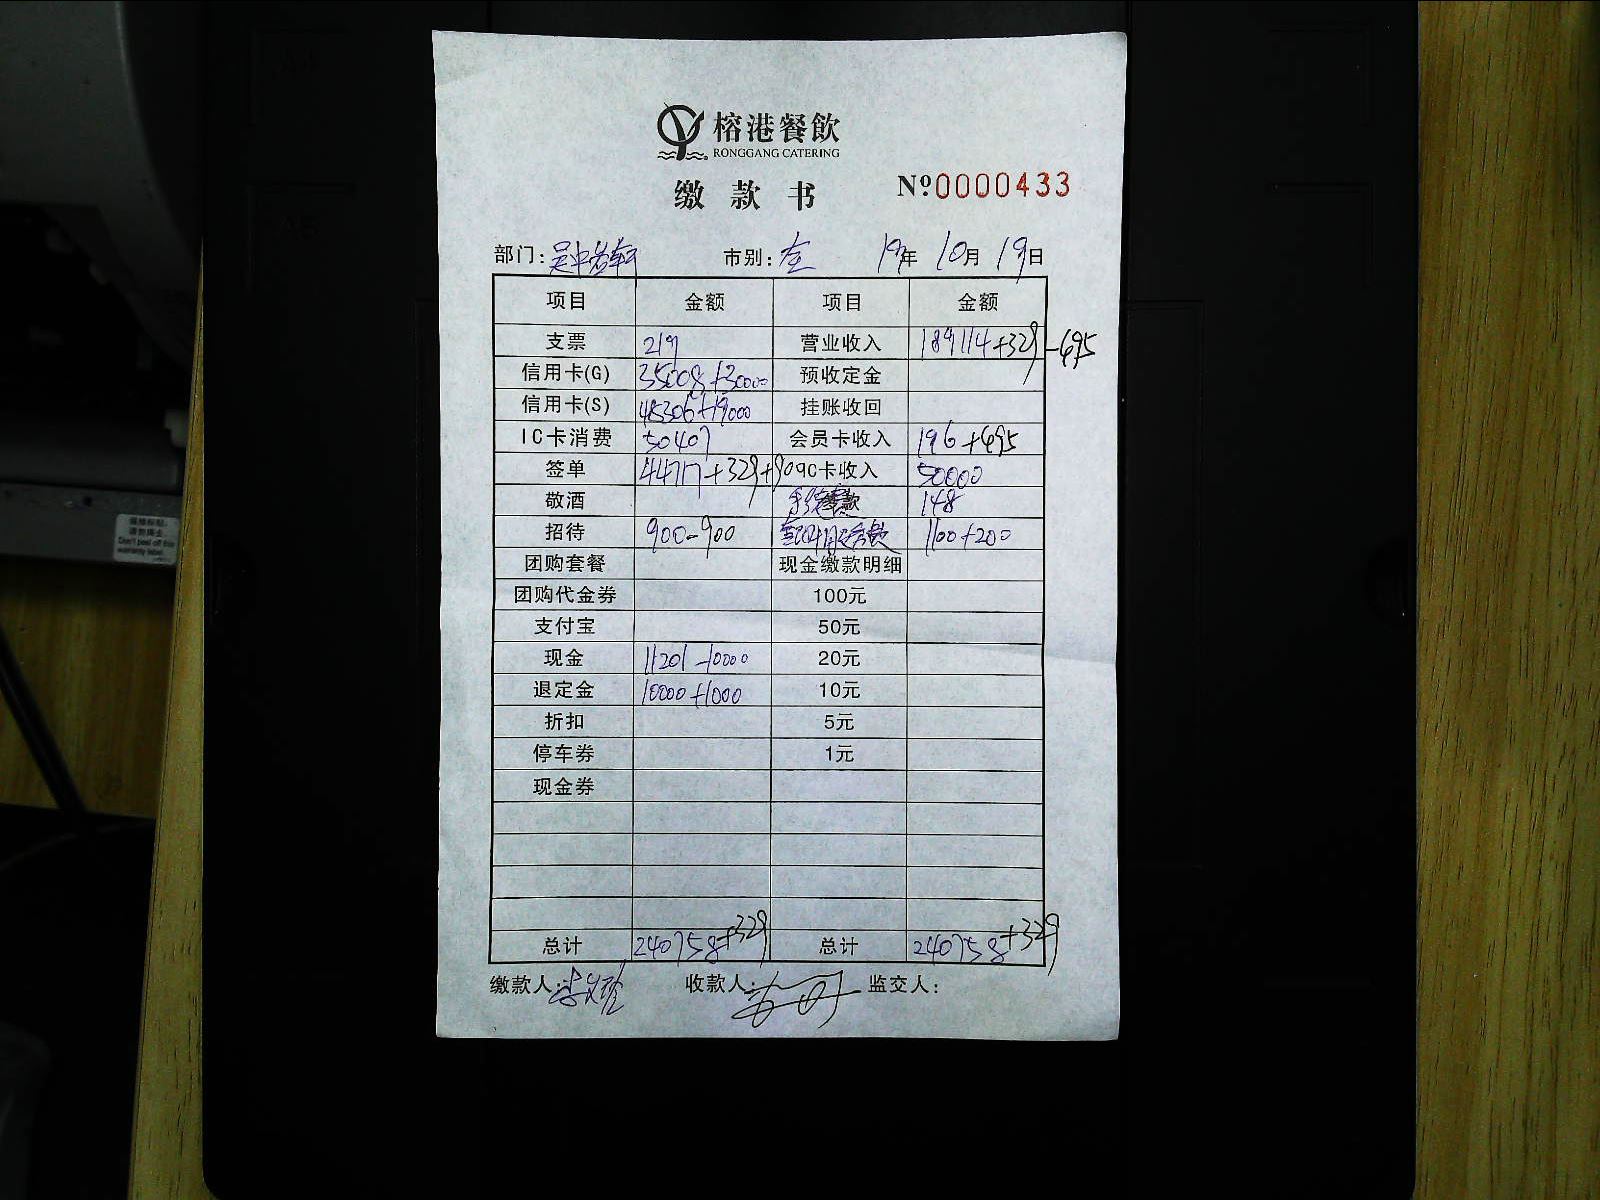 榕港餐飲
RONGGANG CATERING
缴款书 №0000433
部门: 吴中 市别: 19年 10月 19日
项目 金额 项目 金额
支票 219 营业收入 189114+329-695
信用卡(G) 35008+30000 预收定金
信用卡(S) 48306+19000 挂账收回
IC卡消费 50407 会员卡收入 196+695
签单 44717+329+900 IC卡收入 50000
敬酒 148
招待 900-900 1100+200
团购套餐 现金缴款明细
团购代金券 100元
支付宝 50元
现金 11201-10000 20元
退定金 10000+1000 10元
折扣 5元
停车券 1元
现金券
总计 240758+329 总计 240758+329
缴款人: 收款人: 监交人:
Don't peel off this
warranty label.